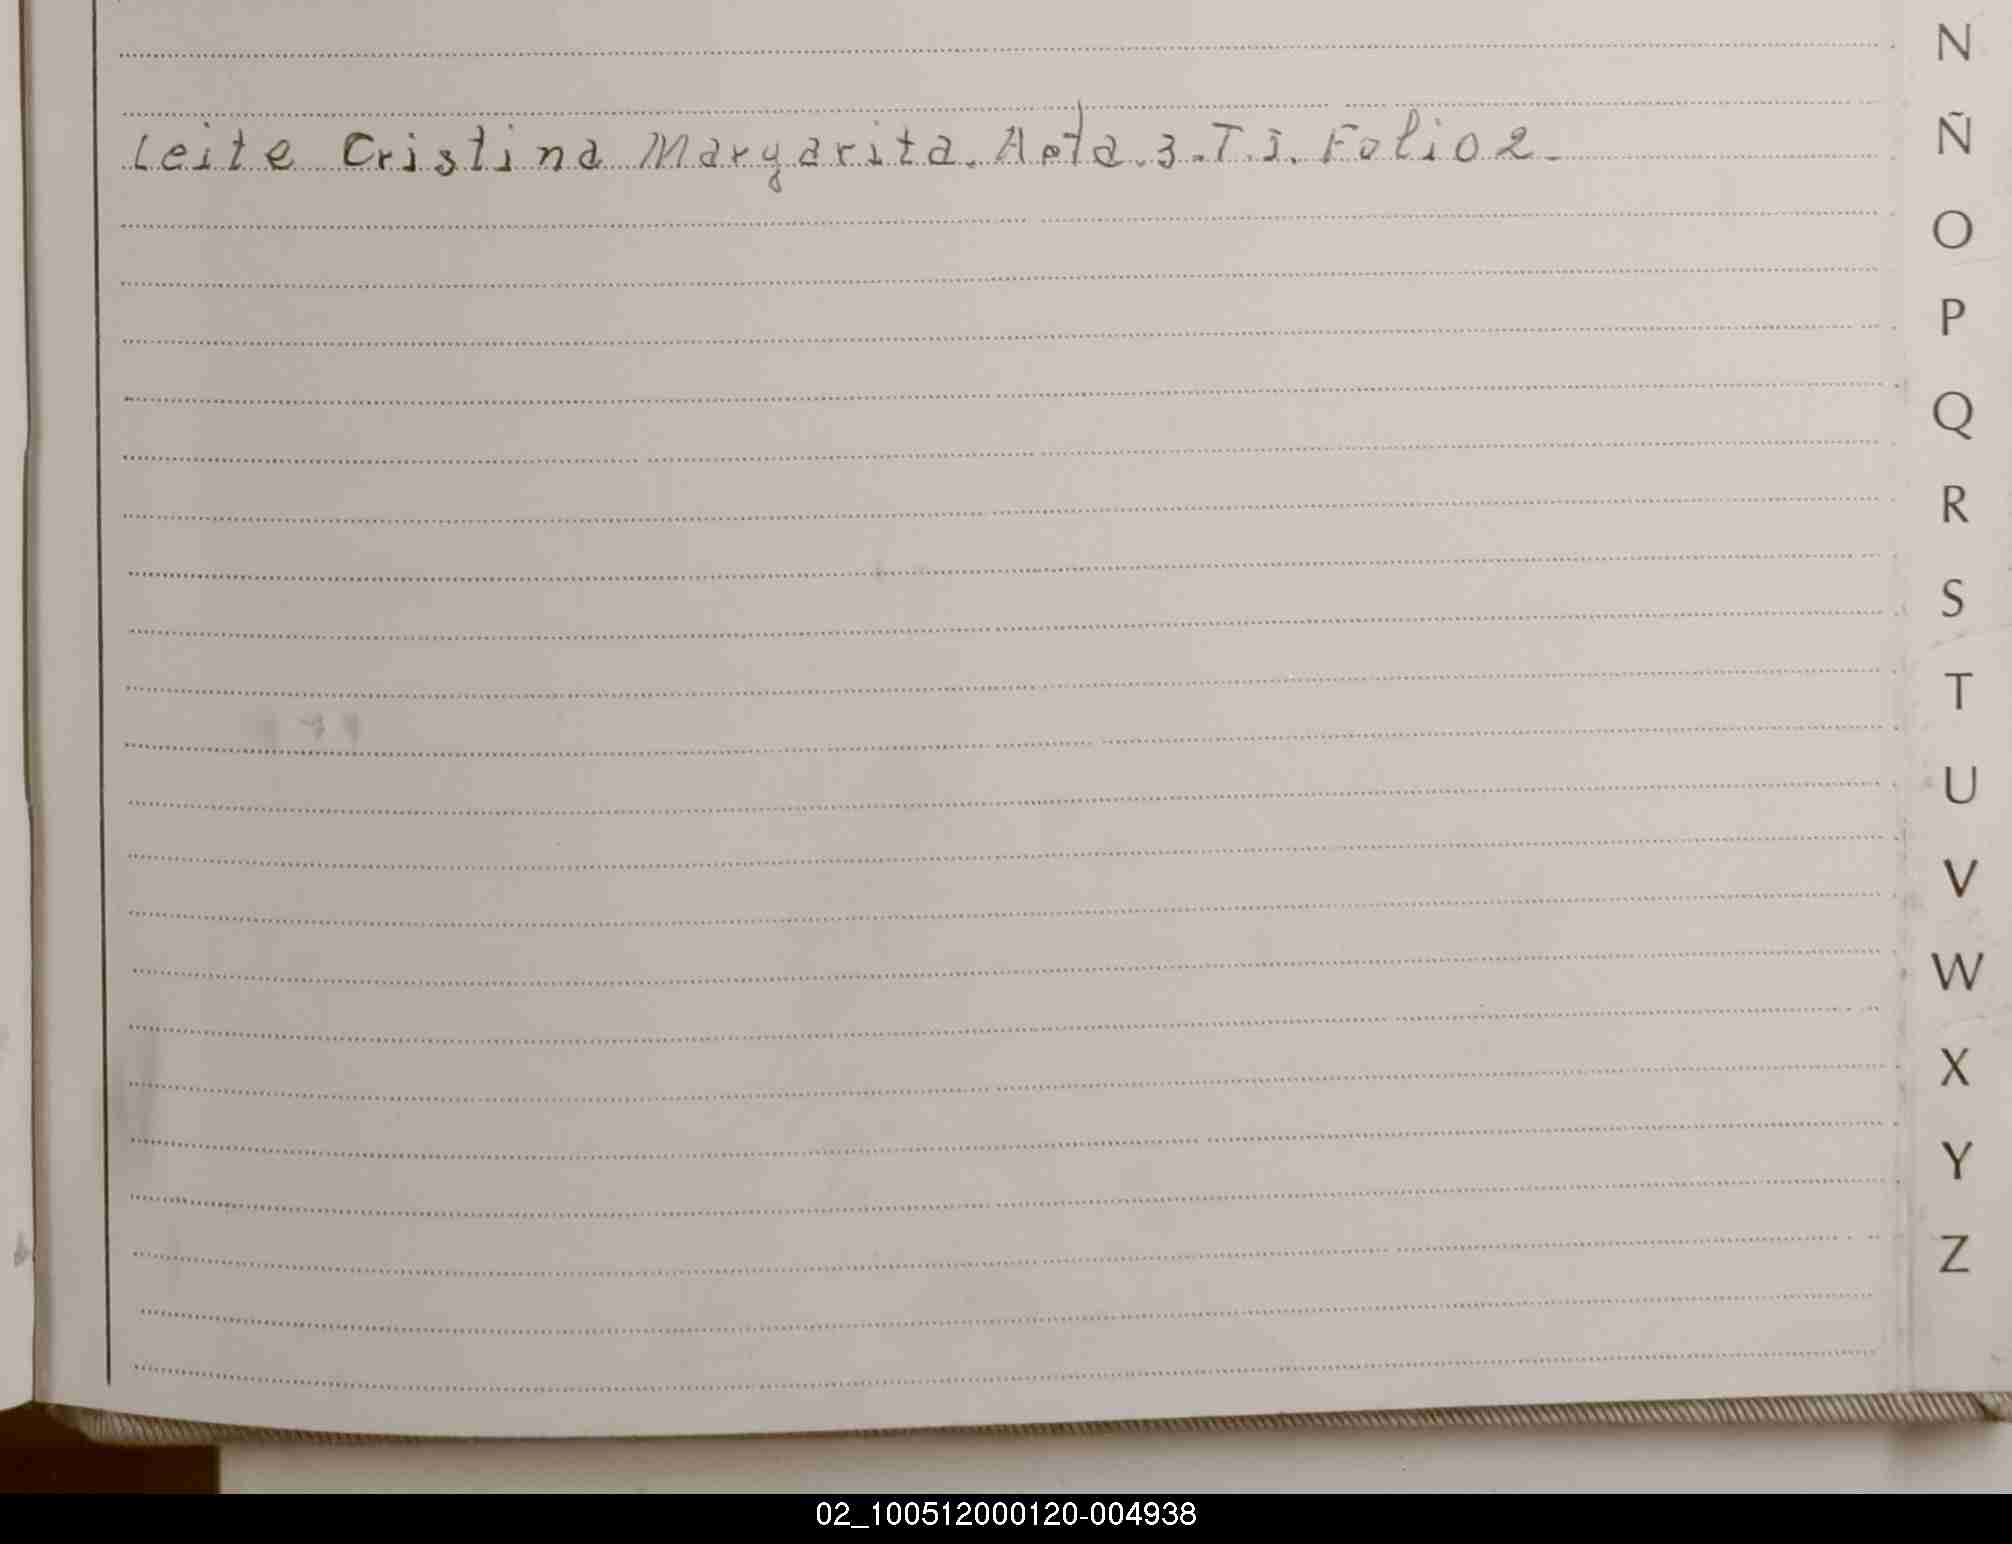 N
Leite Cristina Margarita. Acta. 3. T. I. Folio 2.
Ñ
O
P
Q
R
S
T
U
V
W
X
Y
Z
02_100512000120-004938